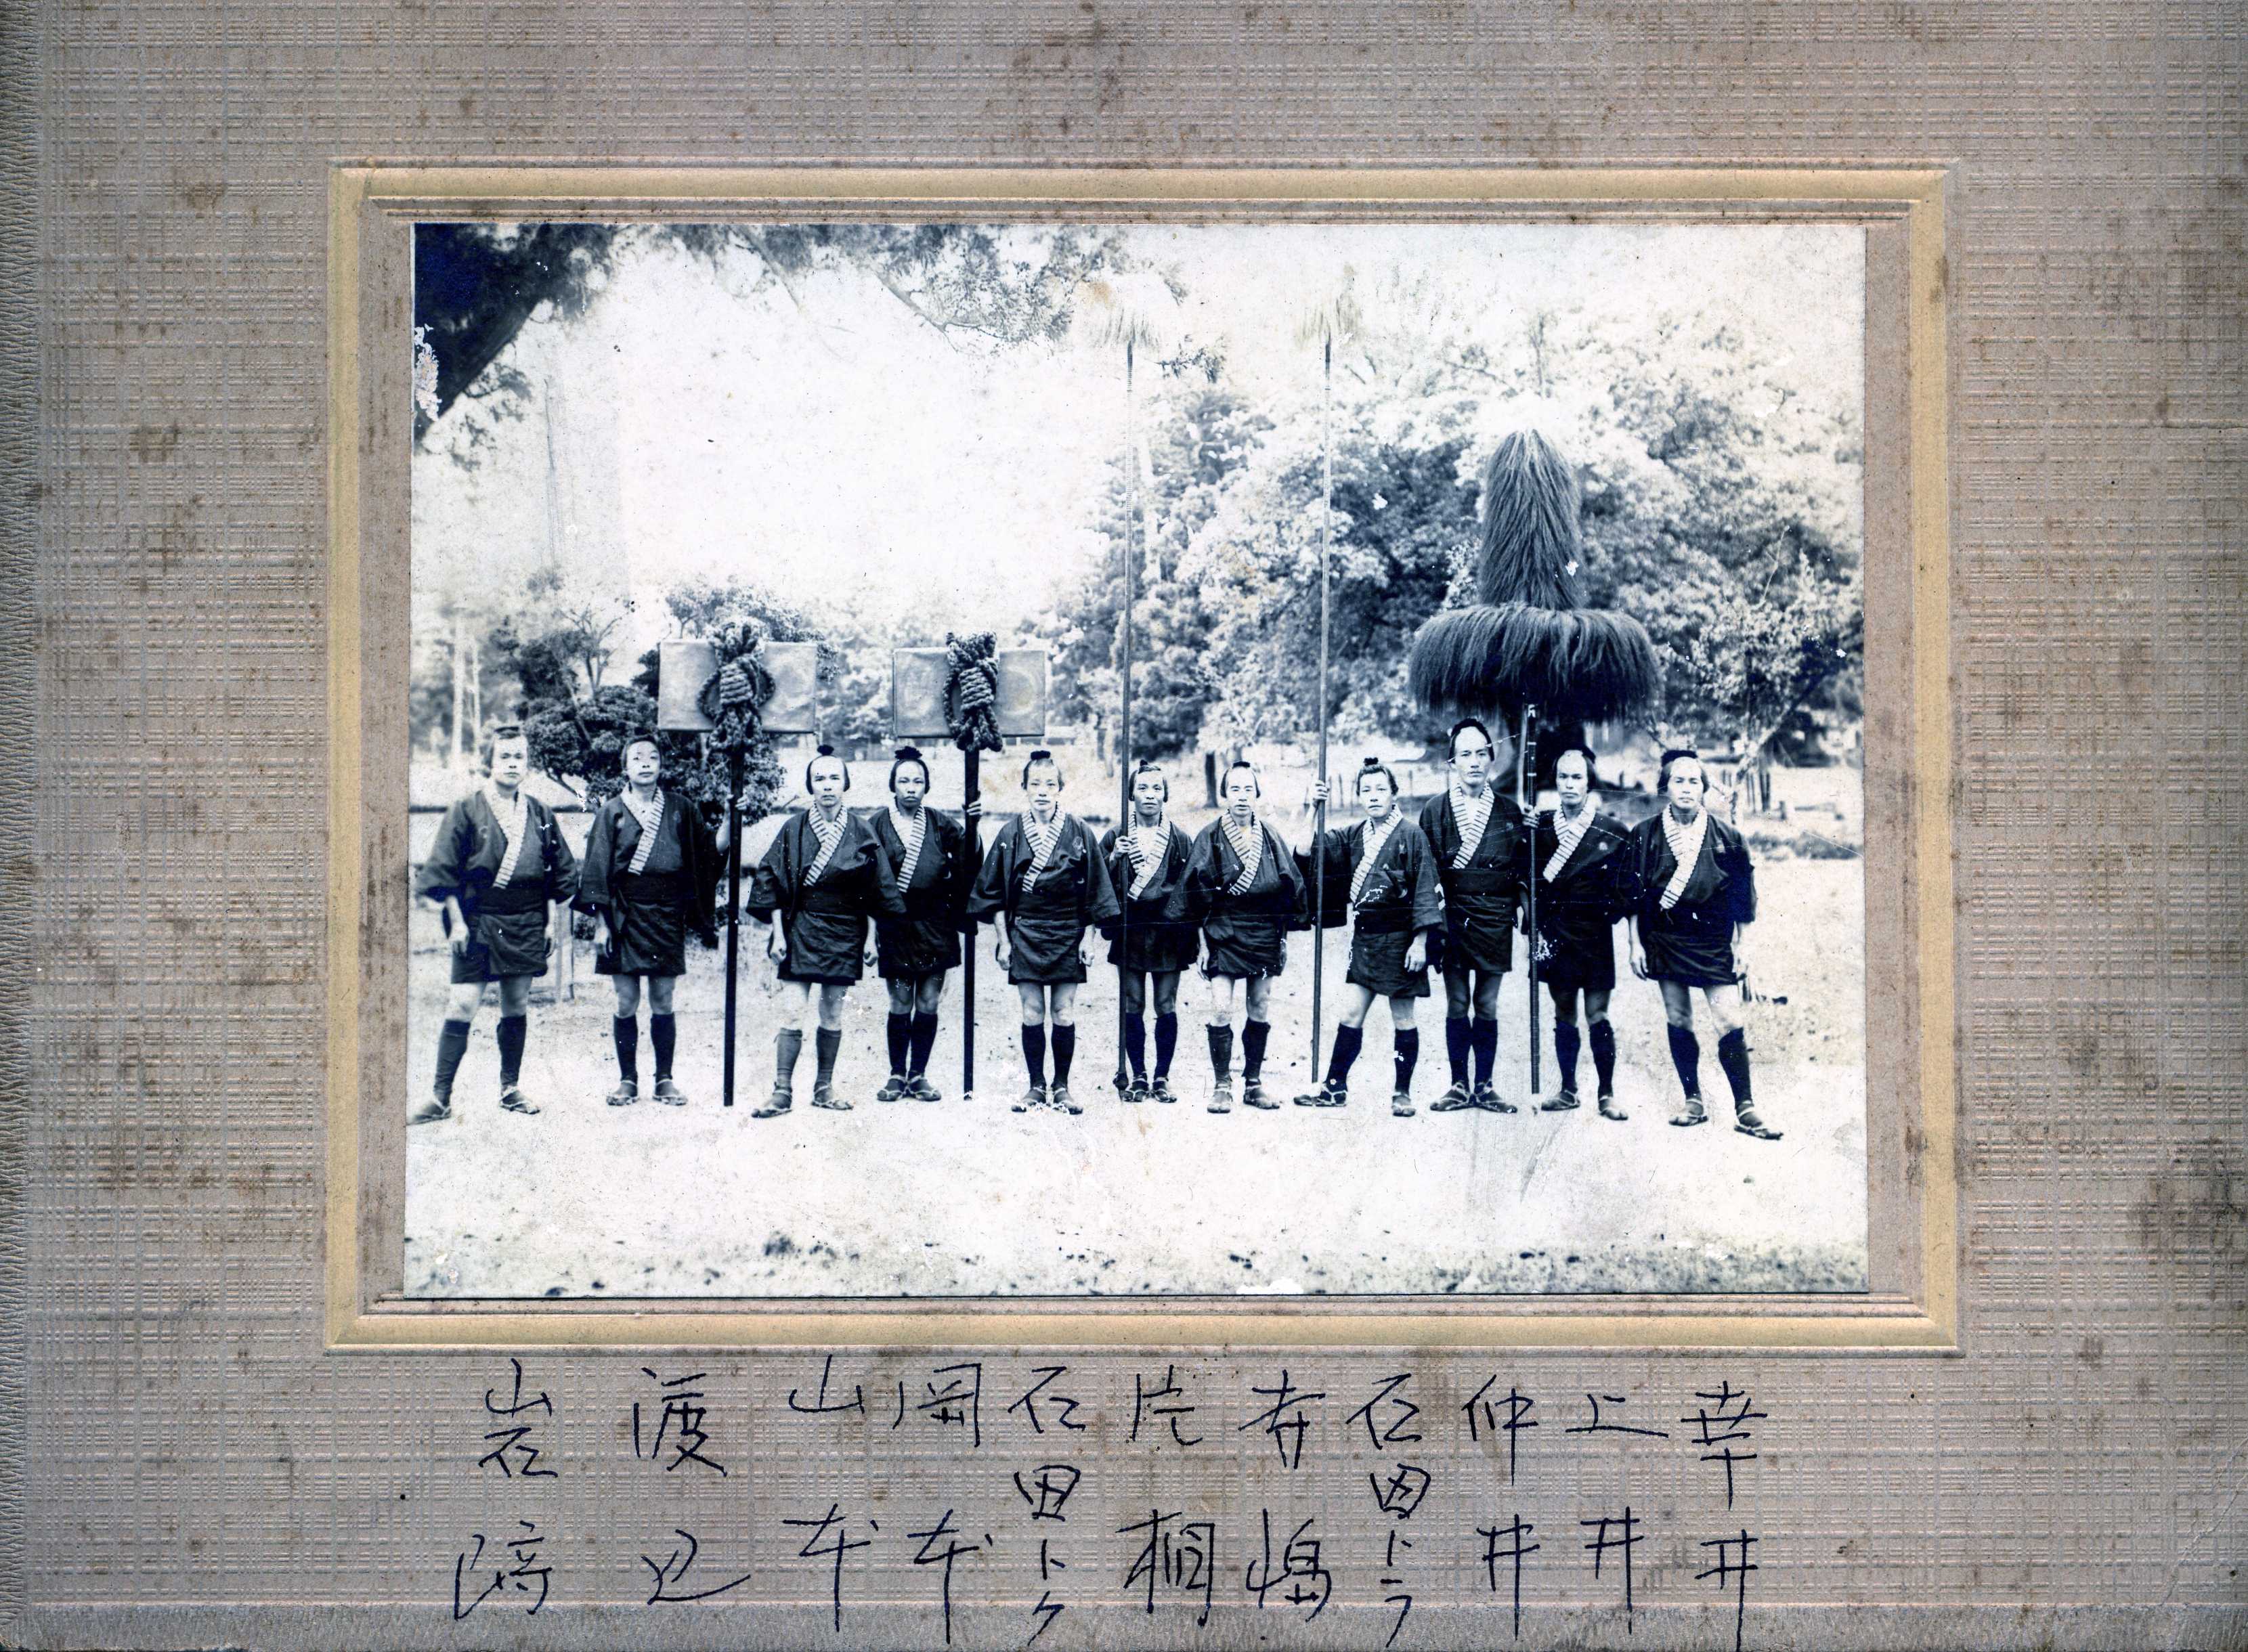 幸井
上井
仲井
石田トラ
寺嶋
片桐
石田トク
岡本
山本
渡辺
岩崎